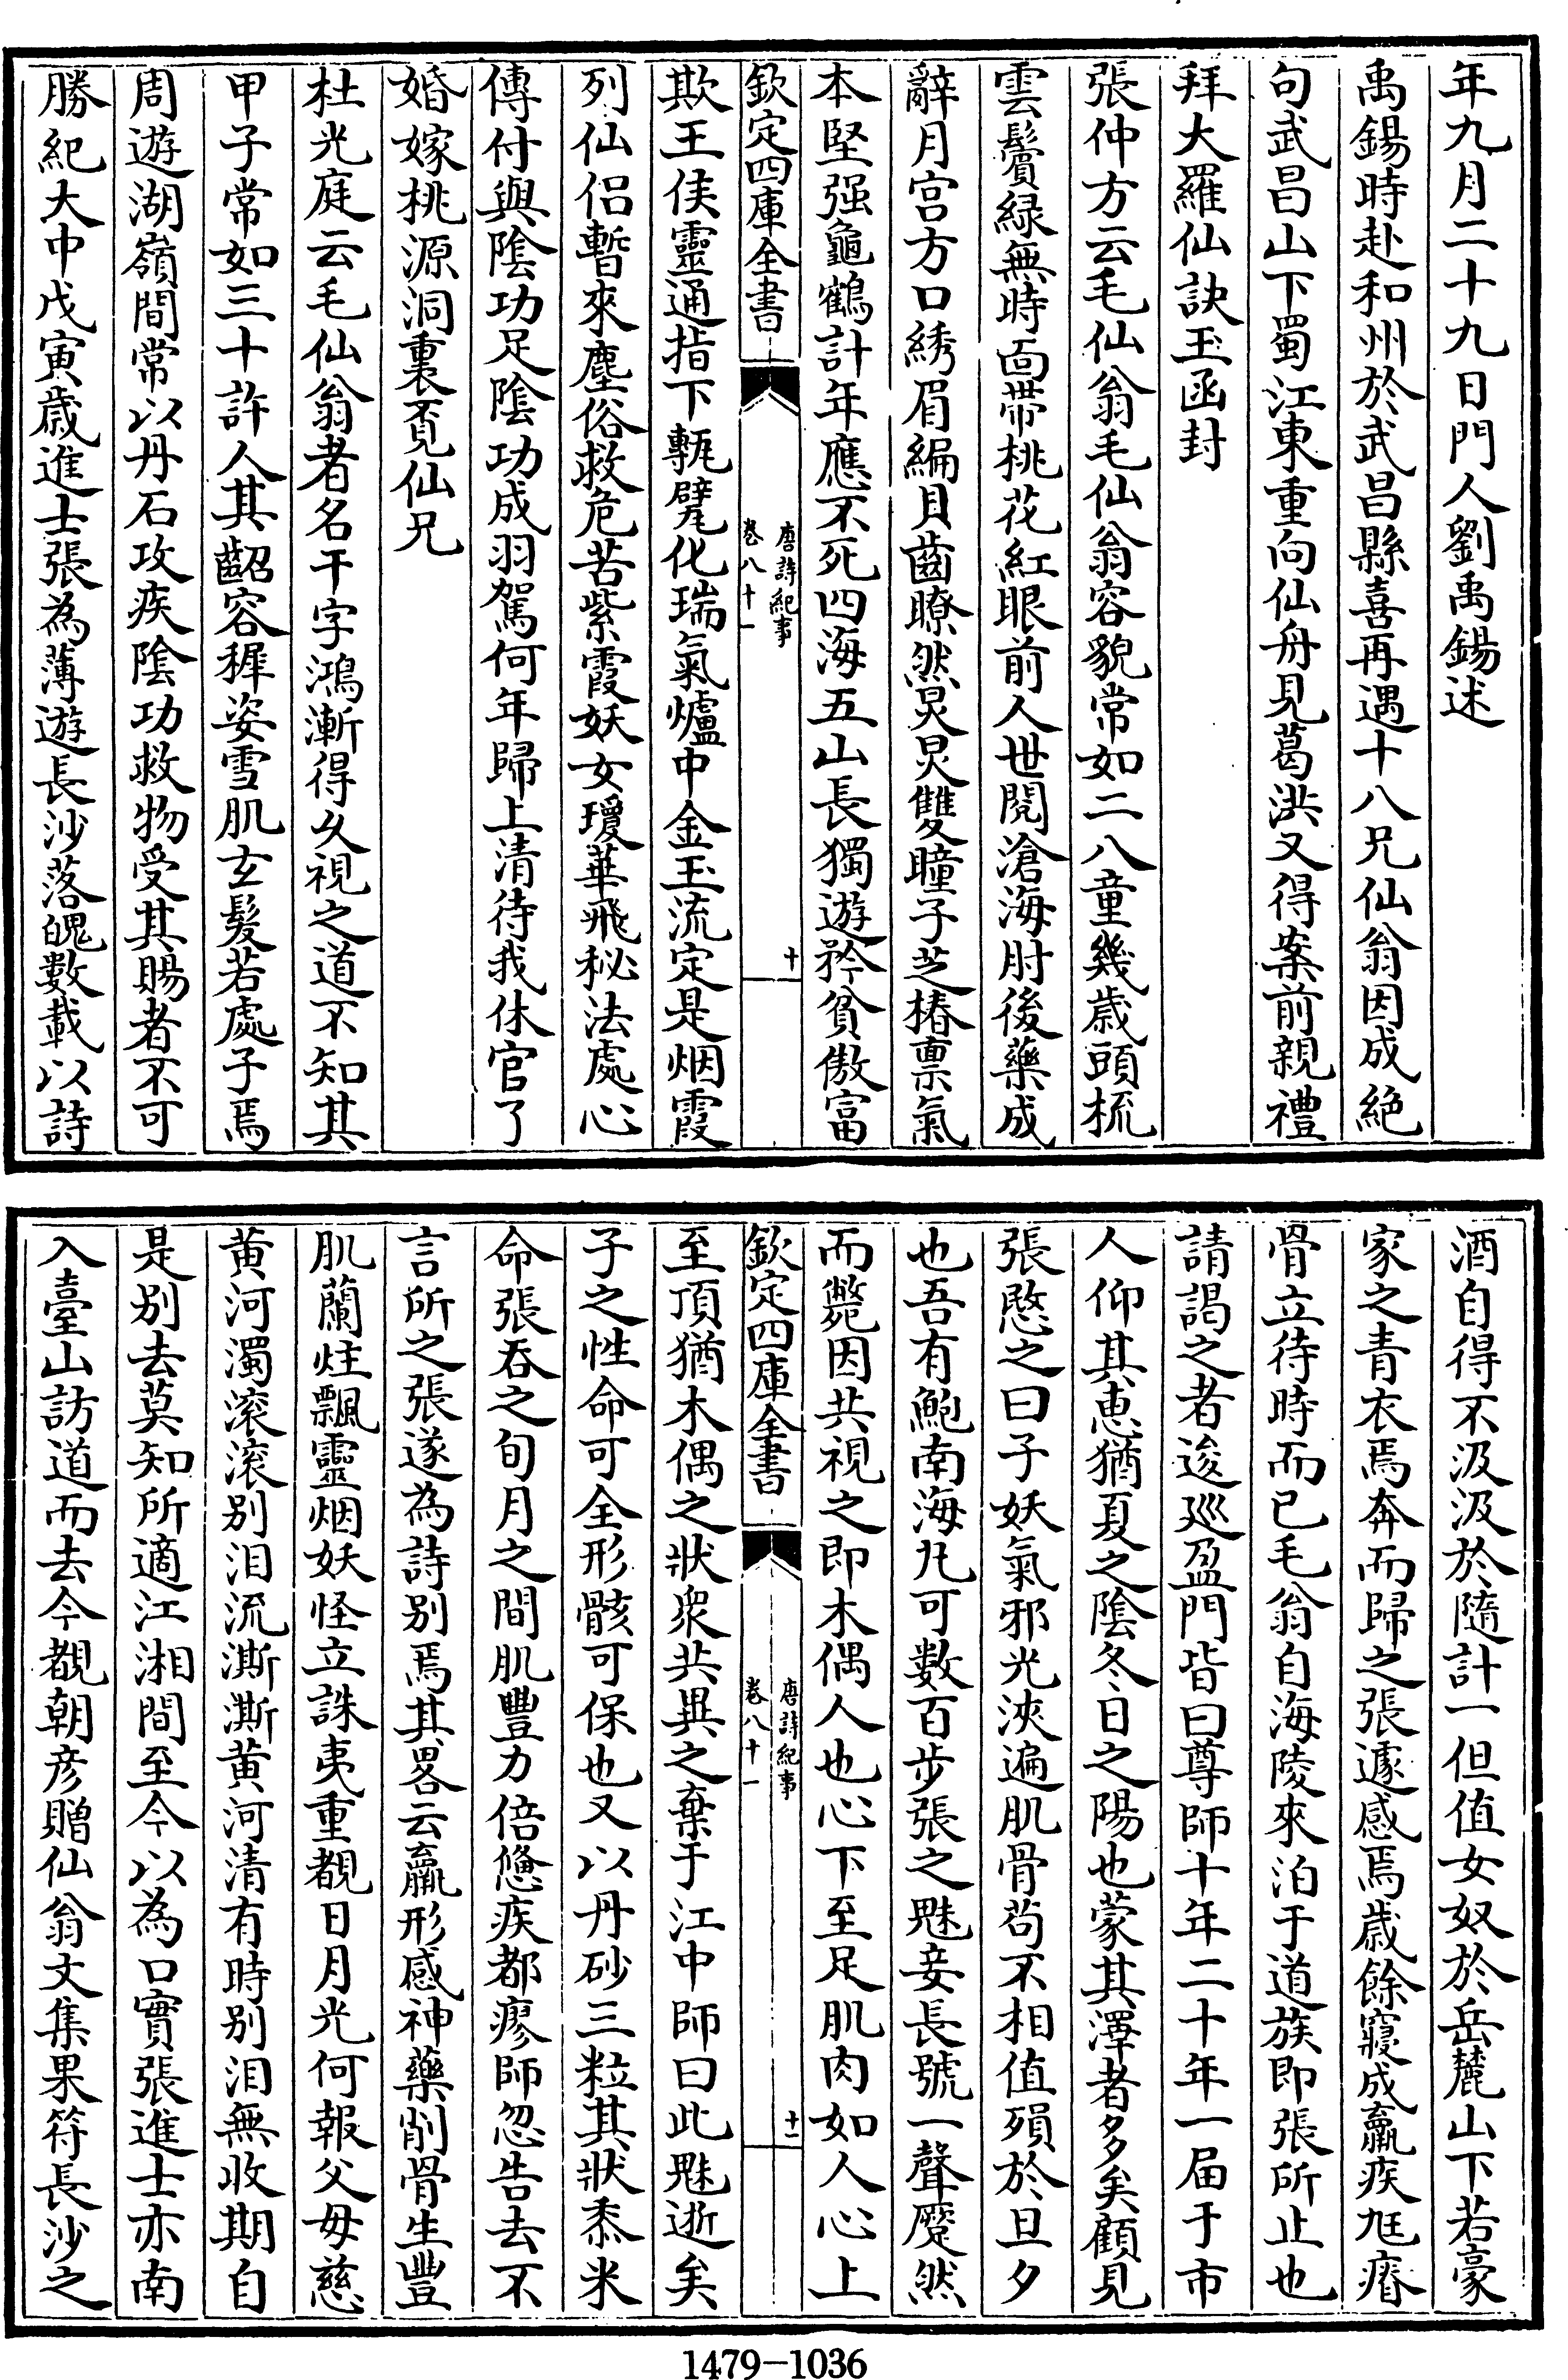 年九月二十九日門人劉禹錫述
禹錫時赴和州於武昌縣喜再遇十八兄仙翁因成絶
句武昌山下蜀江東重向仙舟見葛洪又得案前親禮
拜大羅仙訣玉函封
張仲方云毛仙翁毛仙翁容貌常如二八童幾歲頭梳
雲鬢緑無時面帶桃花紅眼前人世閲滄海肘後藥成
辭月宫方口綉眉編貝齒瞭然炅炅雙瞳子芝椿禀氣
本堅强龜鶴計年應不死四海五山長獨遊矜貧傲富
欽定四庫全書
唐詩紀事
卷八十一
十
欺王侯靈通指下甎甓化瑞氣爐中金玉流定是烟霞
列仙侣暫來塵俗救危苦紫霞妖女瓊華飛秘法處心
傳付與隂功足隂功成羽駕何年歸上清待我休官了
婚嫁桃源洞裏覔仙兄
杜光庭云毛仙翁者名干字鴻漸得乆視之道不知其
甲子常如三十許人其齠容穉姿雪肌玄髮若處子焉
周遊湖嶺間常以丹石攻疾隂功救物受其賜者不可
勝紀大中戊寅歲進士張為薄遊長沙落魄數載以詩
酒自得不汲汲於隨計一但值女奴於岳麓山下若豪
家之青衣焉奔而歸之張遽感焉歲餘寢成羸疾尫瘠
骨立待時而已毛翁自海陵來泊于道族即張所止也
請謁之者逡廵盈門皆曰尊師十年二十年一届于市
人仰其惠猶夏之隂冬日之陽也蒙其澤者多矣顧見
張愍之曰子妖氣邪光浹遍肌骨茍不相值殞於旦夕
也吾有鮑南海九可數百步張之魅妾長號一聲壓然
而斃因共視之即木偶人也心下至足肌肉如人心上
欽定四庫全書
唐詩紀事
卷八十一
十一
至頂猶木偶之狀衆共異之棄于江中師曰此魅逝矣
子之性命可全形骸可保也又以丹砂三粒其狀黍米
命張吞之旬月之間肌豐力倍憊疾都瘳師忽告去不
言所之張遂為詩别焉其畧云羸形感神藥削骨生豐
肌蘭炷飄靈烟妖怪立誅夷重覩日月光何報父母慈
黄河濁滚滚别泪流澌澌黄河清有時别泪無收期自
是别去莫知所適江湘間至今以為口實張進士亦南
入臺山訪道而去今覩朝彦贈仙翁文集果符長沙之
1479-1036